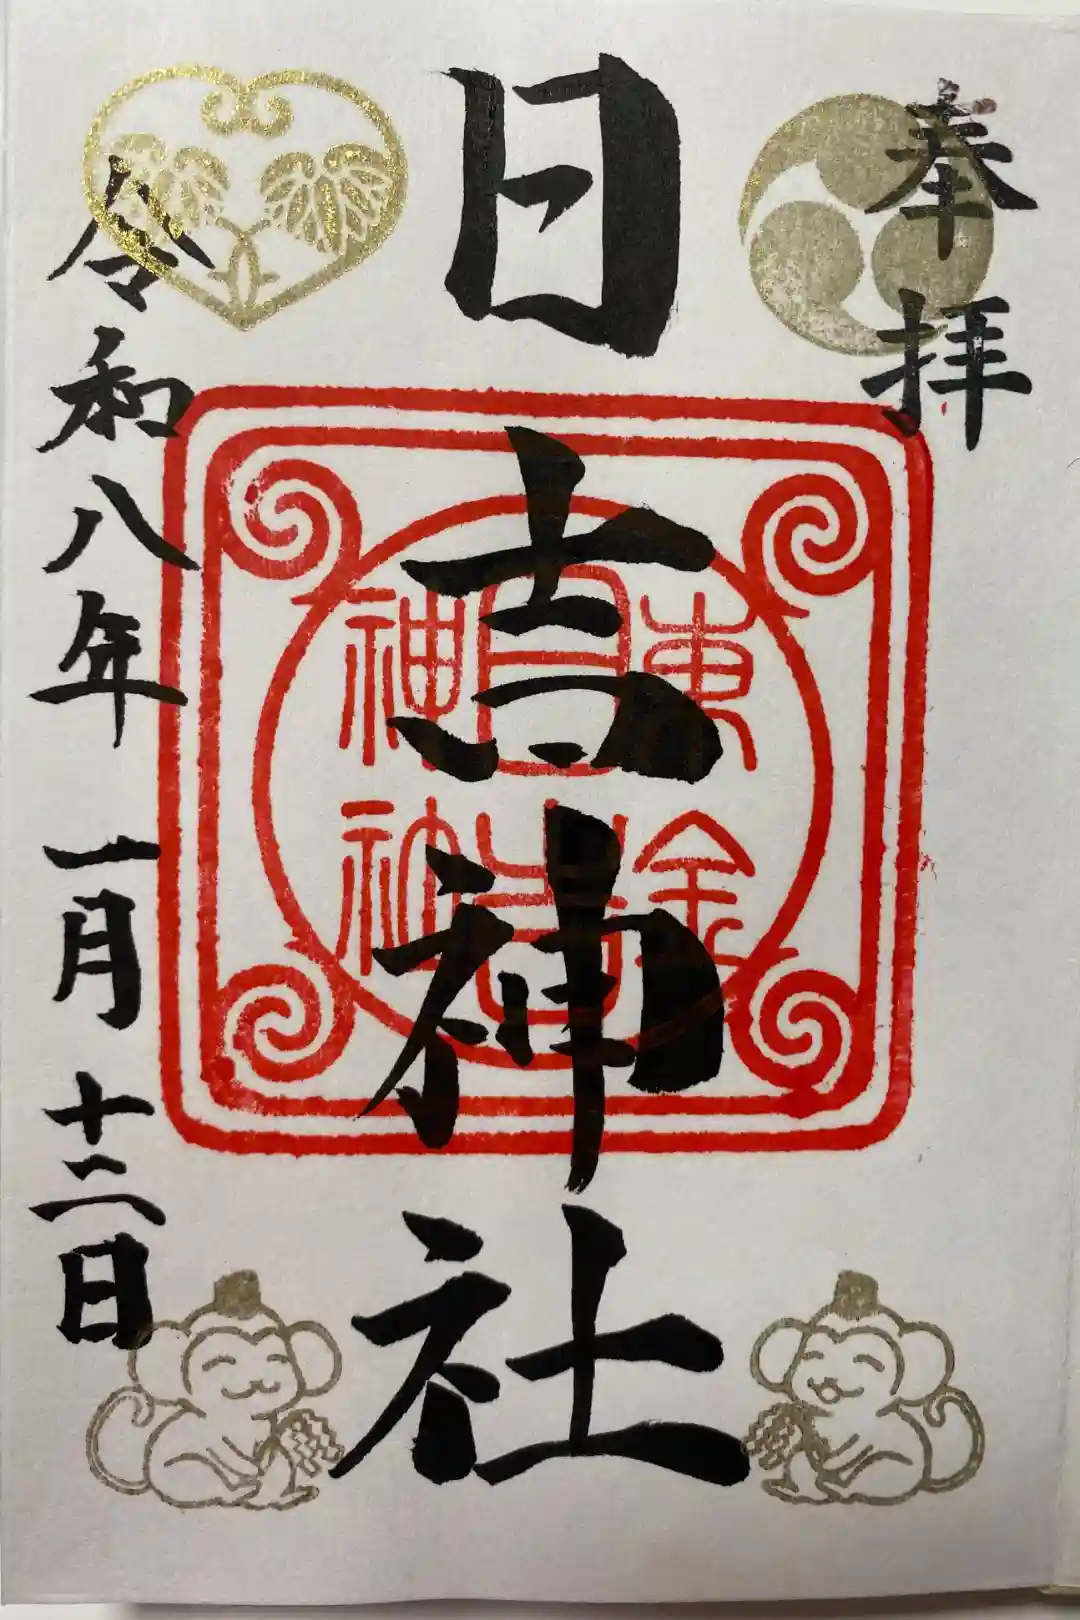 奉拝
日吉神社
東金
日吉
神社
令和八年 一月 十二日